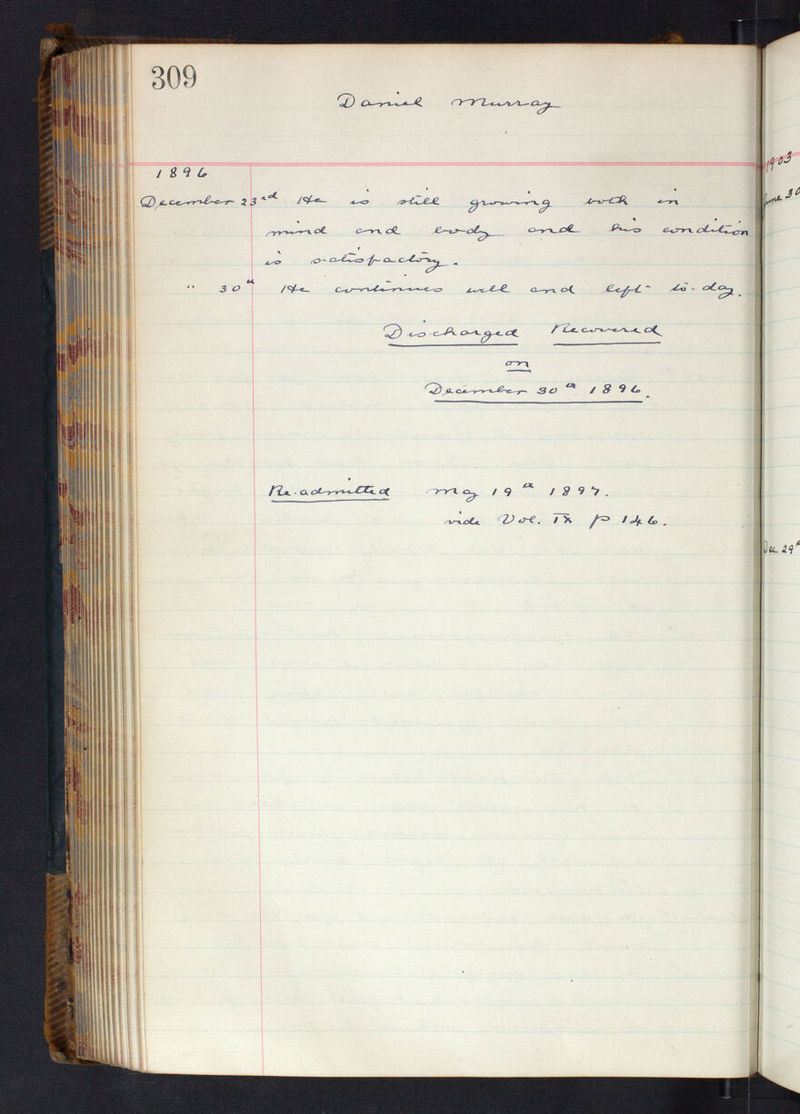 309
Daniel Murray
1896
December 23rd He is still growing both in
mind and body and his condition
is satisfactory.
" 30th He continues well and left to-day.
Discharged Recovered
on
December 30th 1896.
Re-admitted May 19th 1897.
vide Vol. IX p 146.
1903
June 30
Dec. 29th